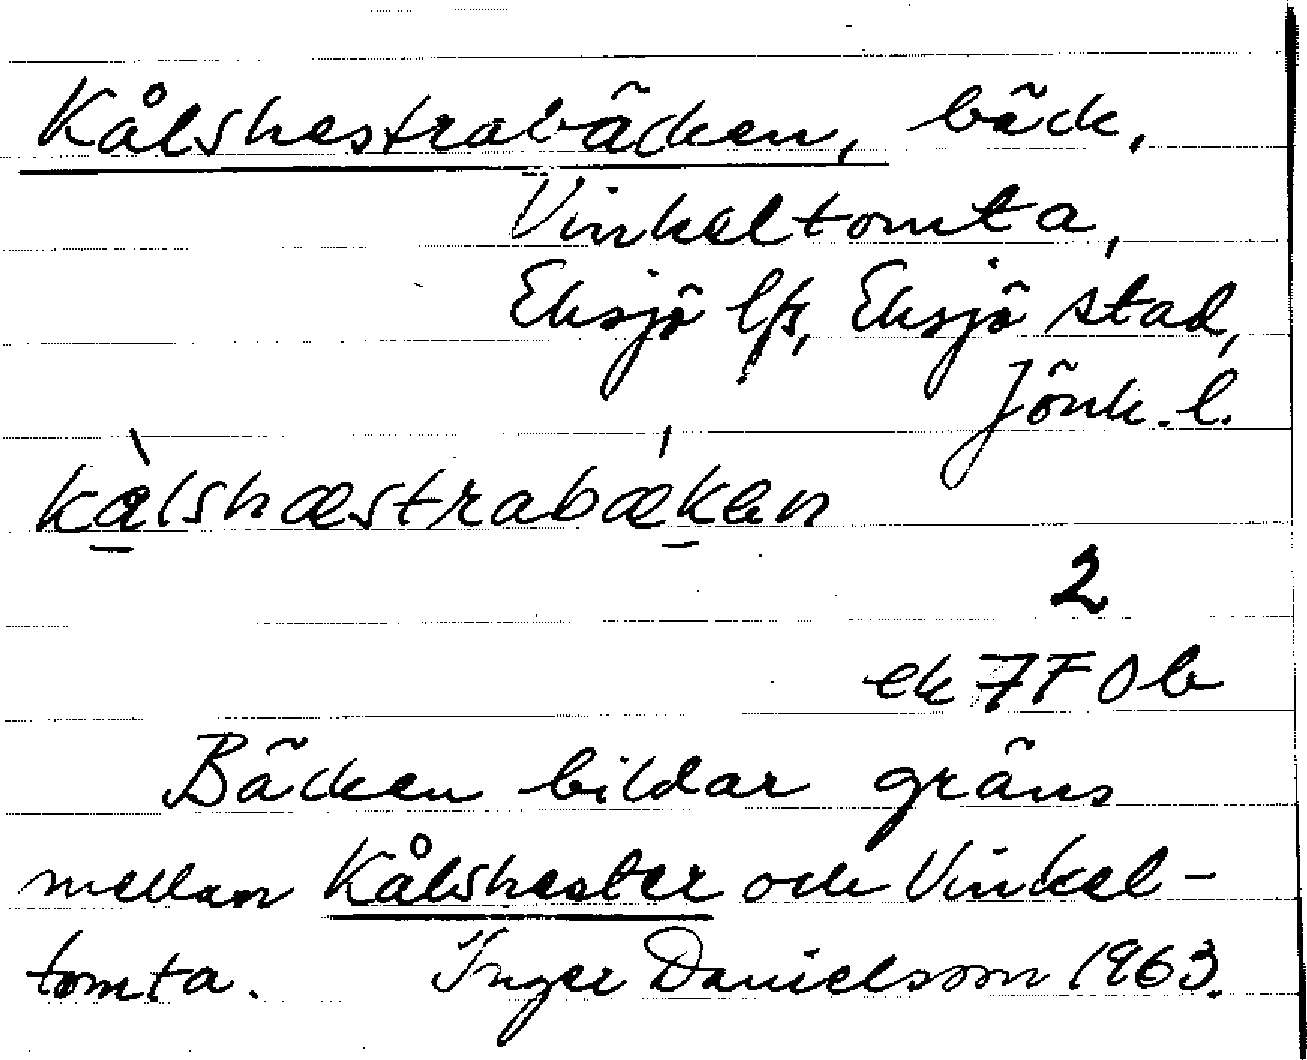 Kålshestrabäcken, bäck,
Vinkeltomta,
Eksjö lfs, Eksjö stad,
Jönk. l.
kàlshæstrabǽken
2
ek 7F0b
Bäcken bildar gräns
mellan Kålshester och Vinkel-
tomta. Inger Danielsson 1963.